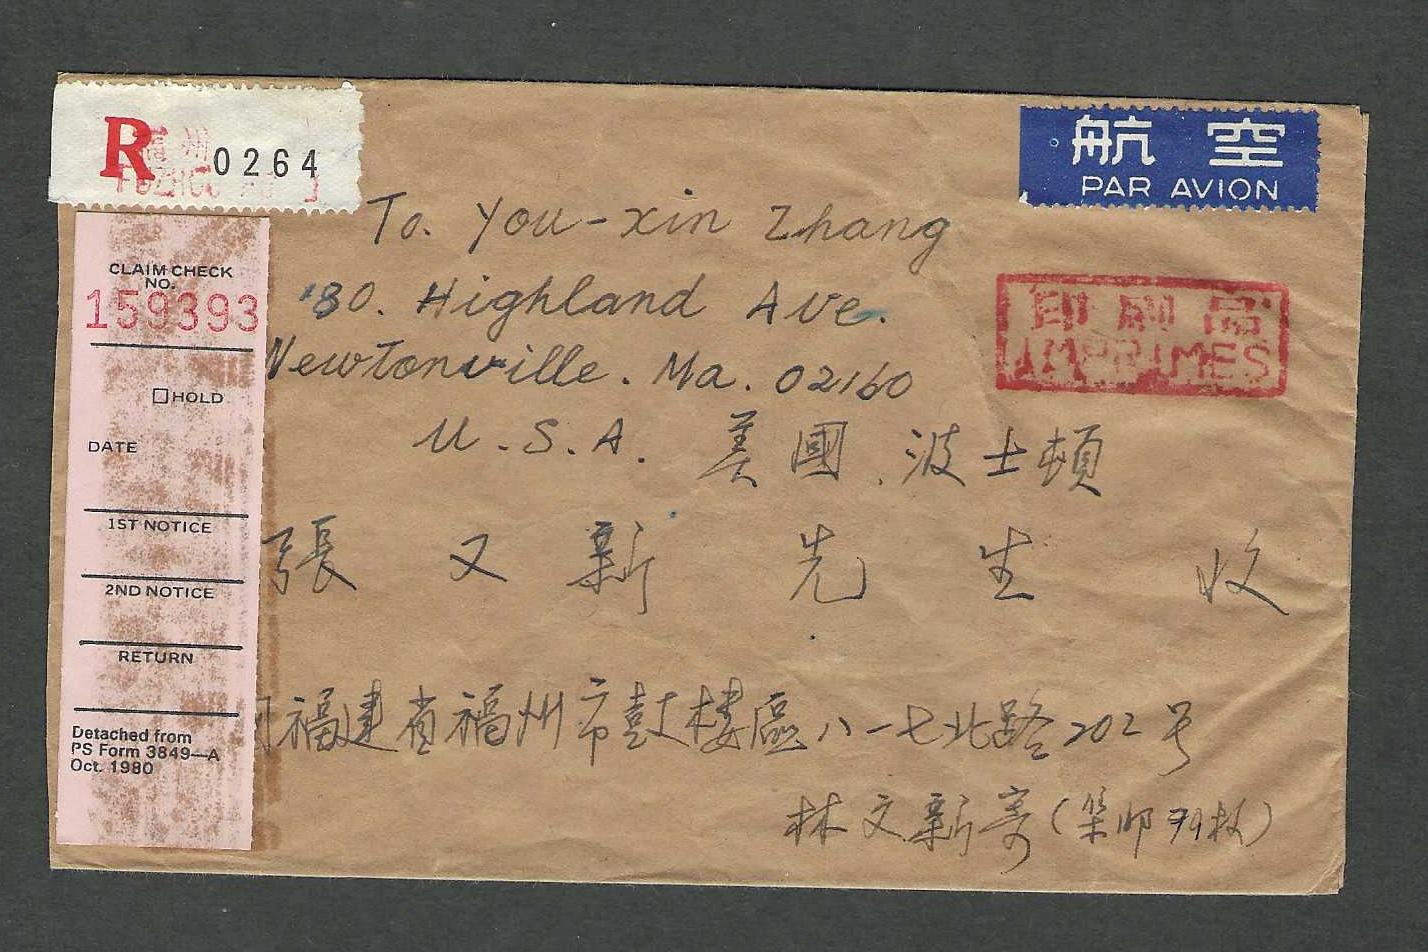 R 0264
福州
航空
PAR AVION
To. You-xin Zhang
80. Highland Ave.
Newtonville. Ma. 02160
U.S.A. 美國.波士頓
印刷品
IMPRIMES
張又新先生收
福建省福州市鼓樓區八一七北路202号
林文新寄(集邮
CLAIM CHECK
NO.
159393
HOLD
DATE
1ST NOTICE
2ND NOTICE
RETURN
Detached from
PS Form 3849—A
Oct. 1980